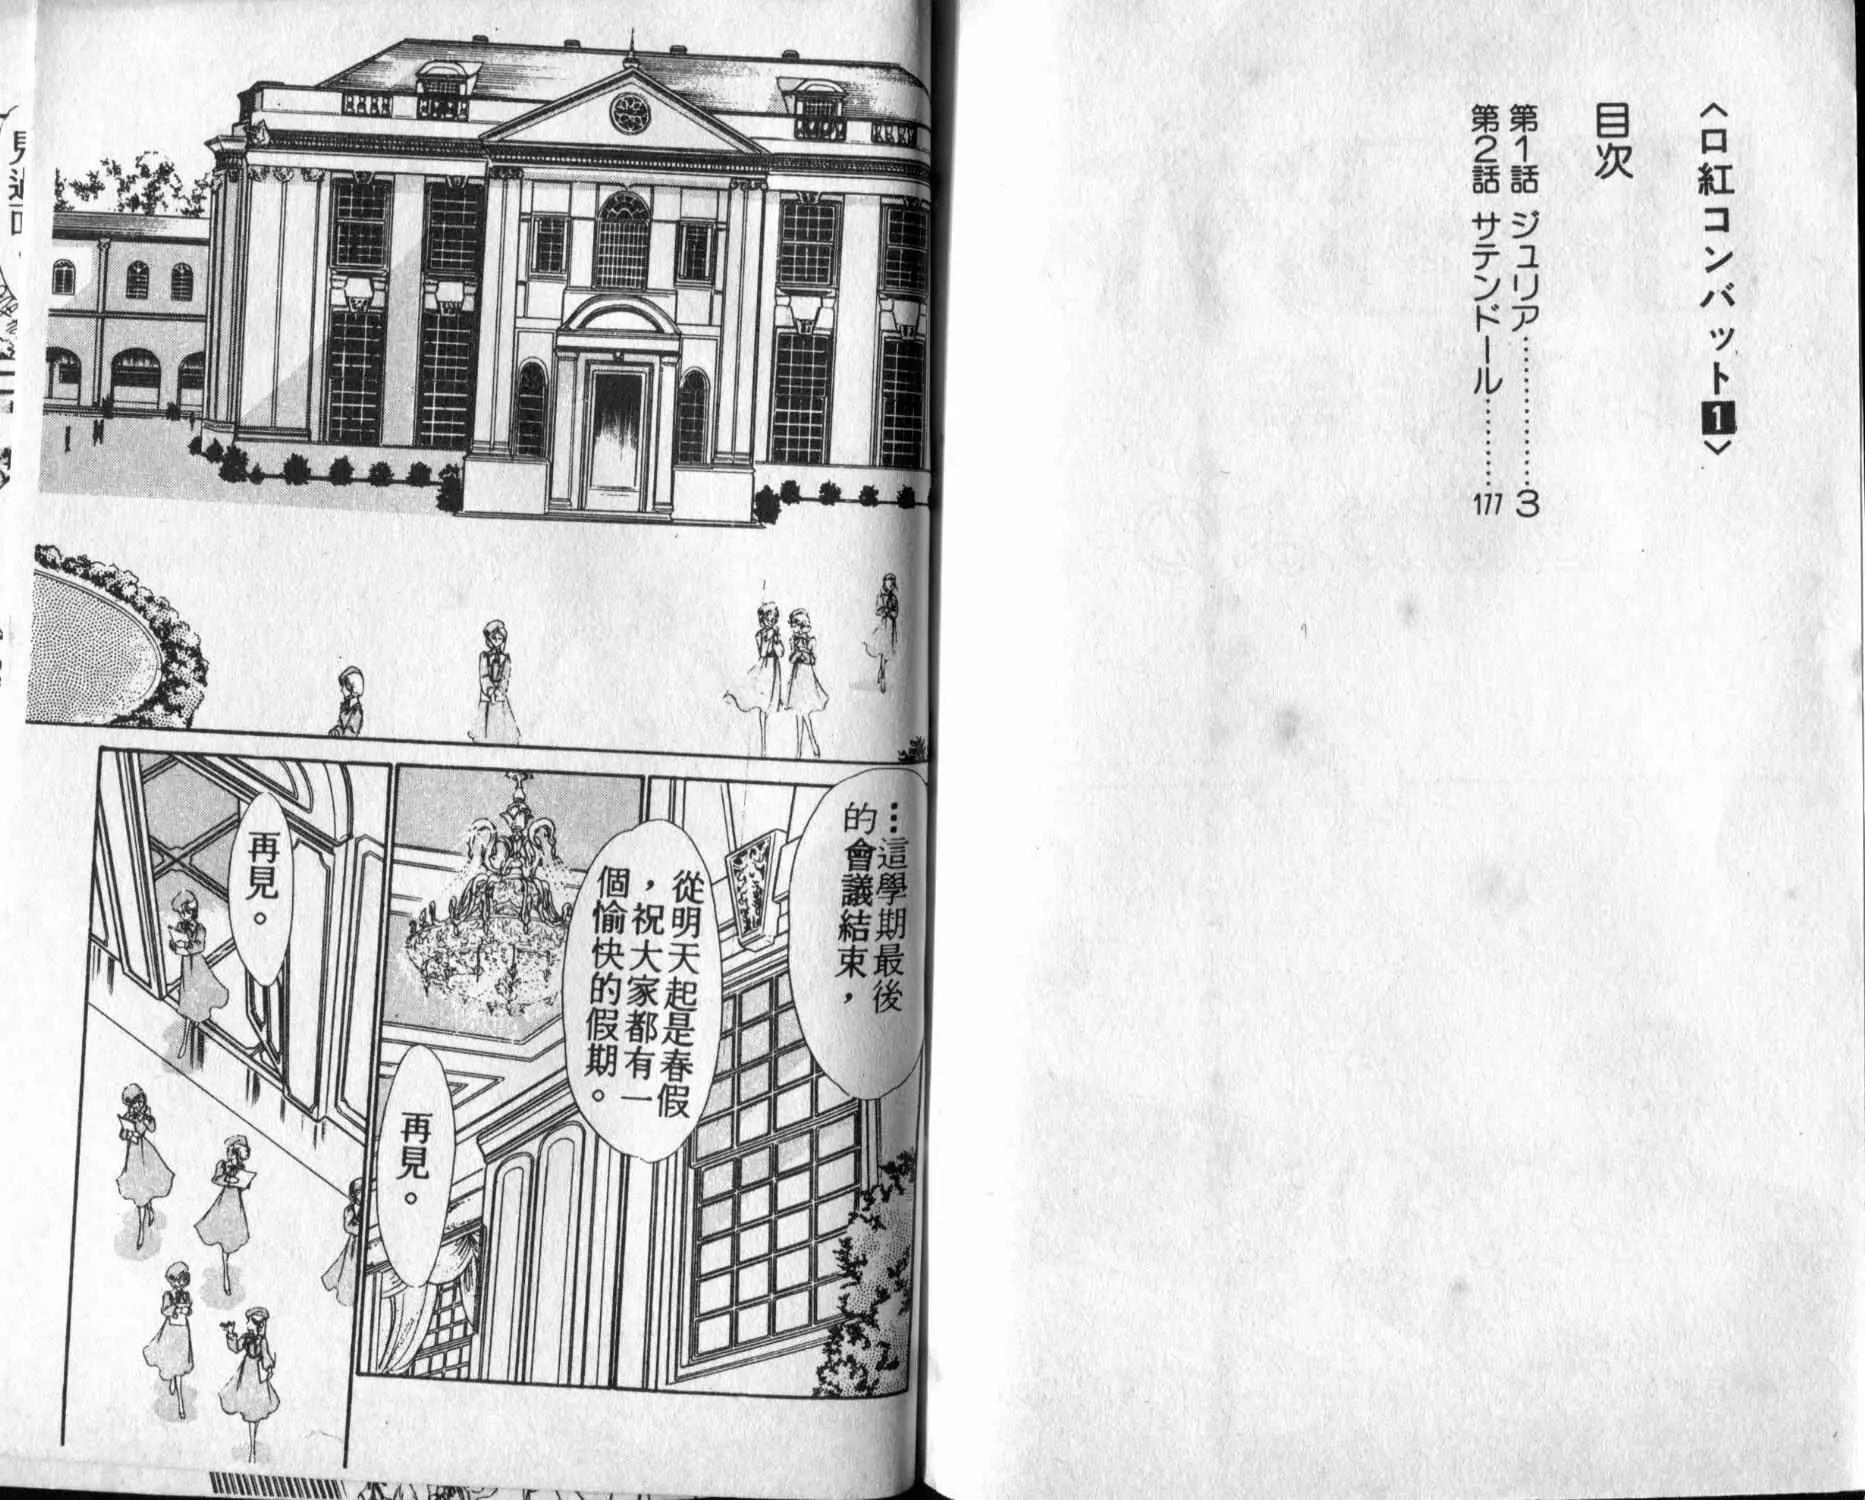 〈口紅コンバット1〉
目次
第1話 ジュリア……………3
第2話 サテンドール………177
…這學期最後
的會議結束，
從明天起是春假
，祝大家都有一
個愉快的假期。
再見。
再見。